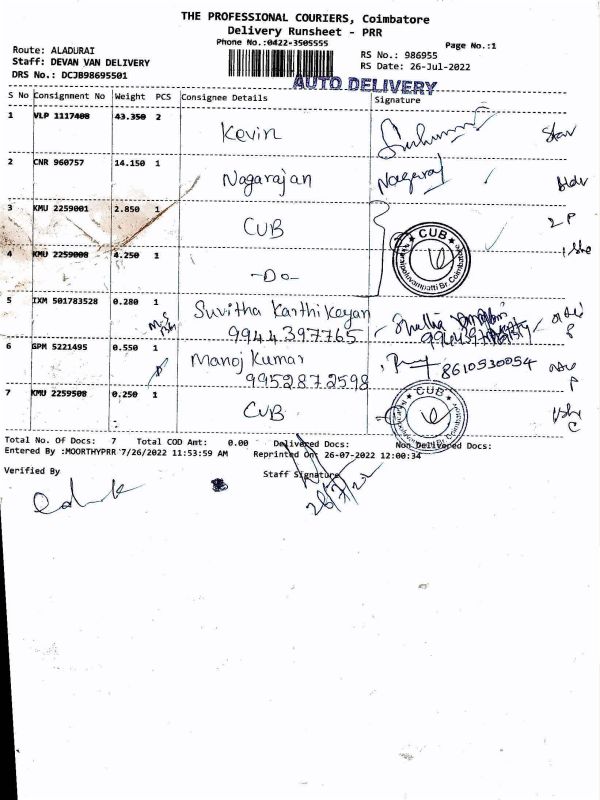 THE PROFESSIONAL COURIERS, Coimbatore
Delivery Runsheet - PRR
Phone No.:0422-3505555
Page No.:1
Route: ALADURAI
RS No.: 986955
Staff: DEVAN VAN DELIVERY
RS Date: 26-Jul-2022
DRS No.: DCJB98695501
AUTO DELIVERY
S No Consignment No Weight PCS Consignee Details Signature
1 VLP 1117408 43.350 2 Kevin
2 CNR 960757 14.150 1 Nagarajan Nagaraj
3 KMU 2259001 2.850 1 CUB 2 P
CUB
4 KMU 2259008 4.250 1 -Do-
5 IXM 501783528 0.280 1 Suvitha Karthikeyan
9944397765
6 GPM 5221495 0.550 1 Manoj Kumar 8610530054
9952872598
7 KMU 2259508 0.250 1 CUB
CUB
Total No. Of Docs: 7 Total COD Amt: 0.00 Delivered Docs: Non Delivered Docs:
Entered By :MOORTHYPRR 7/26/2022 11:53:59 AM Reprinted On: 26-07-2022 12:00:34
Verified By Staff Signature
26/7/22